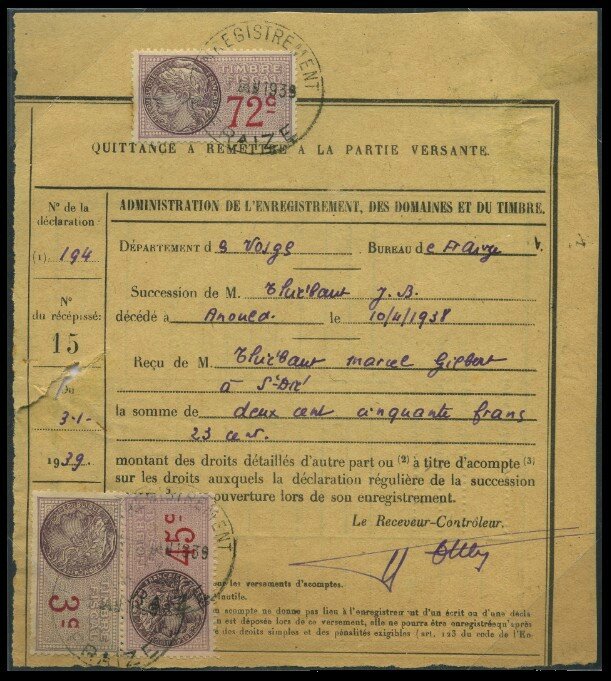 ENREGISTREMENT
TIMBRE
FISCAL
1939
72c
FRAIZE
QUITTANCE A REMETTRE A LA PARTIE VERSANTE.
N° de la
déclaration:
(1). 194
N°
du récépissé:
15
Du
3-1-
1939.
ADMINISTRATION DE L'ENREGISTREMENT, DES DOMAINES ET DU TIMBRE.
DÉPARTEMENT ds Vosges BUREAU de Fraize
Succession de M. Thiébaut J. B.
décédé à Anould le 10/4/1938
Reçu de M. Thiébaut Marcel Gilbert
à St-Dié
la somme de deux cent cinquante frans
23 cent.
montant des droits détaillés d'autre part ou (2) à titre d'acompte (3)
sur les droits auxquels la déclaration régulière de la succession
ouverture lors de son enregistrement.
Le Receveur-Contrôleur.
45c
1939
3c
FRAIZE
our les versements d'acomptes.
inutile.
un acompte ne donne pas lieu à l'enregistrement d'un écrit ou d'une décla
on est déposée lors de ce versement, elle ne pourra être enregistrée qu'a
re des droits simples et des pénalités exigibles (art. 123 du code de l'En-